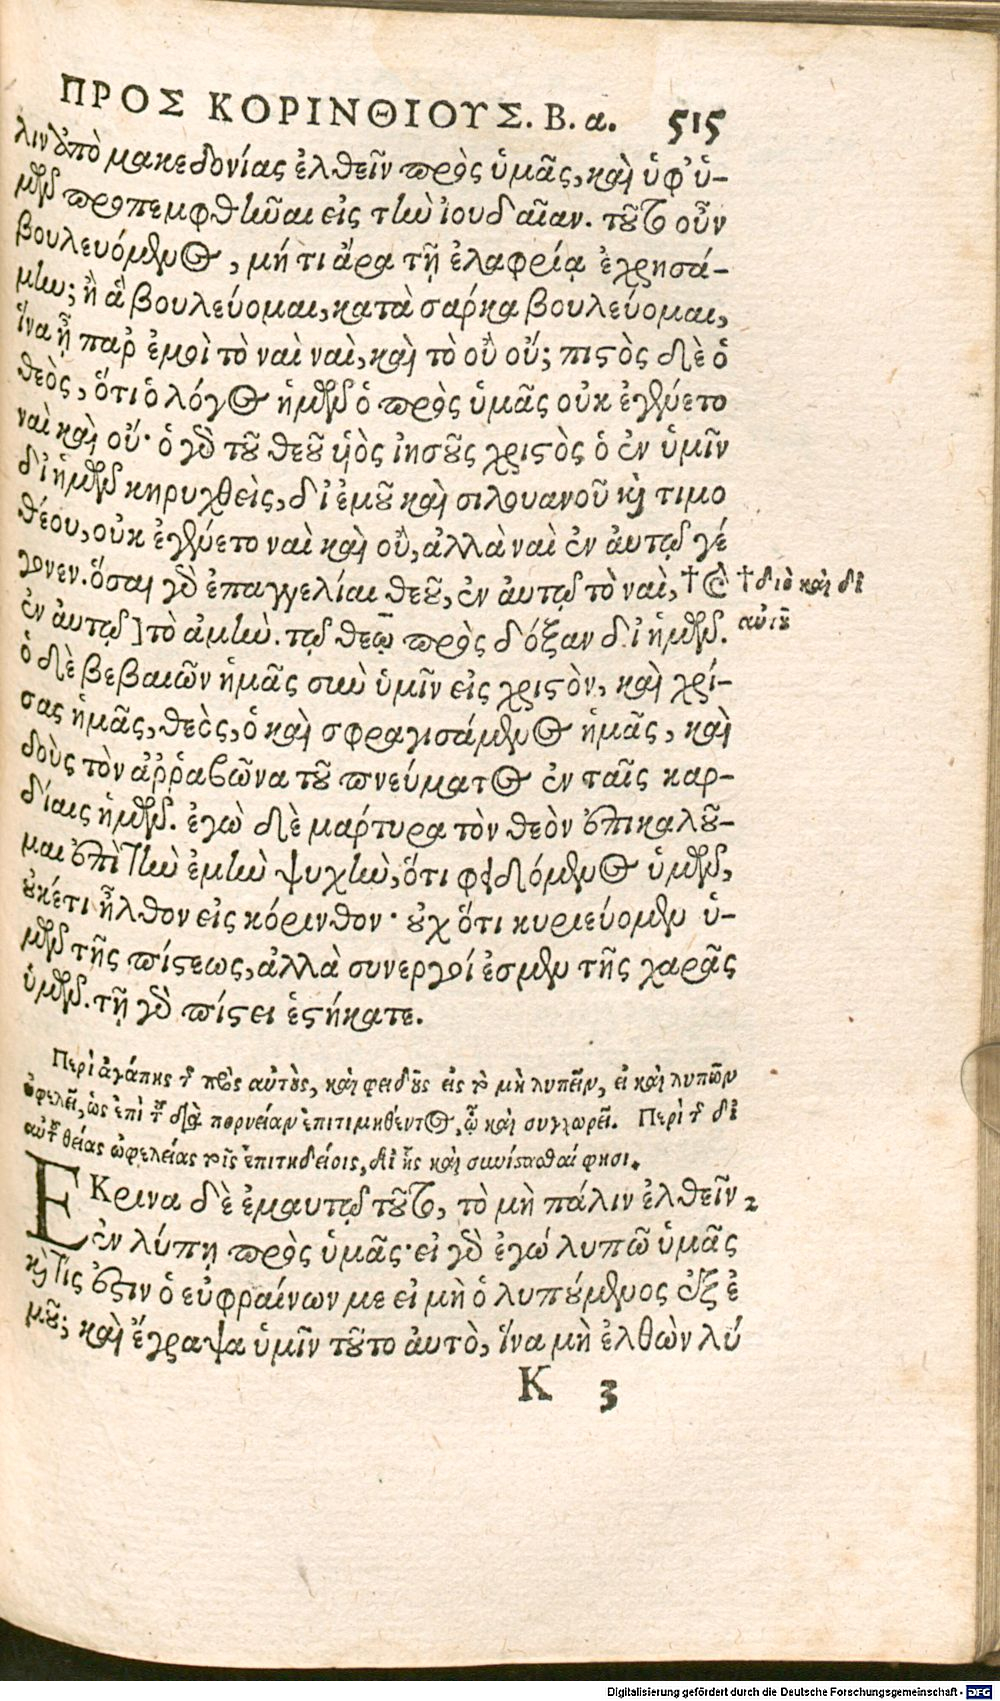 ΠΡΟΣ ΚΟΡΙΝΘΙΟΥΣ. Β. α. 515
λιν ἀπὸ μακεδονίας ἐλθεῖν πρὸς ὑμᾶς, καὶ ὑφ' ὑ-
μῶν προπεμφθῆναι εἰς τὴν ἰουδαῖαν. τοῦτο οὖν
βουλευόμενος, μή τι ἄρα τῇ ἐλαφρίᾳ ἐχρησά-
μην; ἢ ἃ βουλεύομαι, κατὰ σάρκα βουλεύομαι,
ἵνα ᾖ παρ' ἐμοὶ τὸ ναὶ ναὶ, καὶ τὸ οὒ οὔ; πιστὸς δὲ ὁ
θεὸς, ὅτι ὁ λόγος ἡμῶν ὁ πρὸς ὑμᾶς οὐκ ἐγένετο
ναὶ καὶ οὔ· ὁ γὰρ τοῦ θεοῦ υἱὸς ἰησοῦς χριστὸς ὁ ἐν ὑμῖν
δι' ἡμῶν κηρυχθεὶς, δι' ἐμοῦ καὶ σιλουανοῦ καὶ τιμο
θέου, οὐκ ἐγένετο ναὶ καὶ οὒ, ἀλλὰ ναὶ ἐν ἀυτῷ γέ
γονεν. ὅσαι γὰρ ἐπαγγελίαι θεοῦ, ἐν ἀυτῷ τὸ ναὶ, † καὶ † διὸ καὶ δι'
ἐν ἀυτῷ] τὸ ἀμὴν. τῷ θεῷ πρὸς δόξαν δι' ἡμῶν. αὐτοῦ
ὁ δὲ βεβαιῶν ἡμᾶς σὺν ὑμῖν εἰς χριστὸν, καὶ χρί-
σας ἡμᾶς, θεὸς, ὁ καὶ σφραγισάμενος ἡμᾶς, καὶ
δοὺς τὸν ἀῤῥαβῶνα τοῦ πνεύματος ἐν ταῖς καρ-
δίαις ἡμῶν. ἐγὼ δὲ μάρτυρα τὸν θεὸν ἐπικαλοῦ-
μαι ἐπὶ τὴν ἐμὴν ψυχὴν, ὅτι φειδόμενος ὑμῶν,
οὐκέτι ἦλθον εἰς κόρινθον· οὐχ ὅτι κυριεύομεν ὑ-
μῶν τῆς πίστεως, ἀλλὰ συνεργοί ἐσμεν τῆς χαρᾶς
ὑμῶν. τῇ γὰρ πίστει ἑστήκατε.
Περὶ ἀγάπης τῆς πρὸς αὐτοὺς, καὶ φειδοῦς εἰς τὸ μὴ λυπεῖν, εἰ καὶ λυπῶν
ὠφελεῖ, ὡς ἐπὶ τοῦ διὰ πορνείαν ἐπιτιμηθέντος, ᾧ καὶ συγχωρεῖ. Περὶ τῆς δι'
αὐτοῦ θείας ὠφελείας τοῖς ἐπιτηδείοις, δι' ἧς καὶ συνίστασθαί φησι.
ΕΚρινα δὲ ἐμαυτῷ τοῦτο, τὸ μὴ πάλιν ἐλθεῖν 2
ἐν λύπῃ πρὸς ὑμᾶς· εἰ γὰρ ἐγώ λυπῶ ὑμᾶς
καὶ τίς ἐστιν ὁ εὐφραίνων με εἰ μὴ ὁ λυπούμενος ἐξ ἐ
μοῦ; καὶ ἔγραψα ὑμῖν τοῦτο ἀυτὸ, ἵνα μὴ ἐλθὼν λύ
K 3
Digitalisierung gefördert durch die Deutsche Forschungsgemeinschaft - DFG